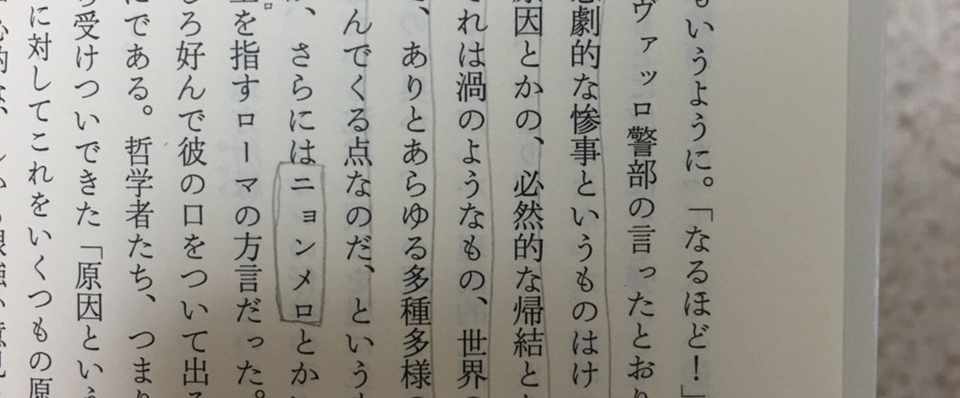 もいうように。「なるほど！」
ヴァッロ警部の言ったとおり
悲劇的な惨事というものはけ
原因とかの、必然的な帰結と
それは渦のようなもの、世界の
、ありとあらゆる多種多様の
んでくる点なのだ、という
、さらにはニョンメロとか
を指すローマの方言だった。
しろ好んで彼の口をついて出る
たである。哲学者たち、つまり
受けついできた「原因という
に対してこれをいくつもの原